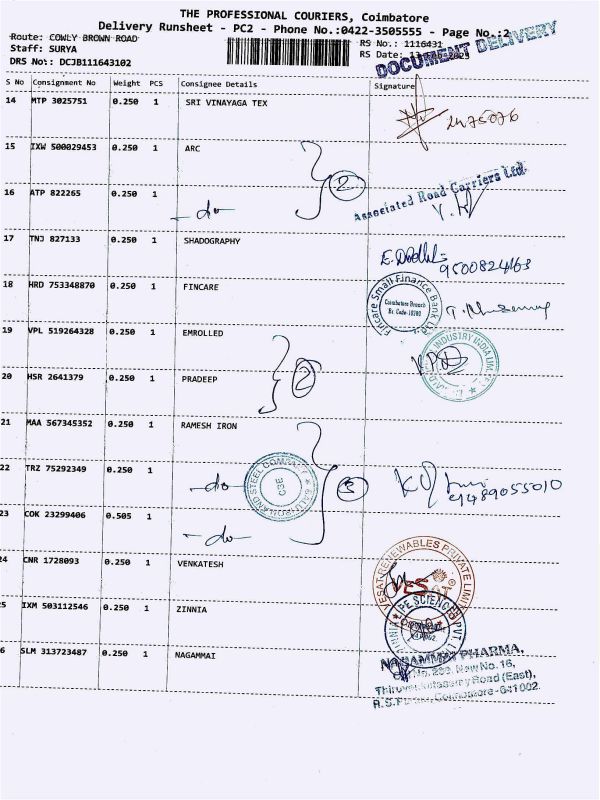 THE PROFESSIONAL COURIERS, Coimbatore
Delivery Runsheet - PC2 - Phone No.:0422-3505555 - Page No.:2
Route: COWLY BROWN ROAD
RS No.: 1116431
Staff: SURYA
RS Date:
DOCUMENT DELIVERY
DRS No:: DCJB111643102
S No Consignment No Weight PCS Consignee Details Signature
14 MTP 3025751 0.250 1 SRI VINAYAGA TEX
2475076
15 IXW 500029453 0.250 1 ARC
2
16 ATP 822265 0.250 1
-do-
Associated Road Carriers Ltd.
17 TNJ 827133 0.250 1 SHADOGRAPHY
9500824163
18 HRD 753348870 0.250 1 FINCARE
Fincare Small Finance Bank Ltd
Coimbatore Branch
Br. Code-
19 VPL 519264328 0.250 1 EMROLLED
INDUSTRY INDIA
20 HSR 2641379 0.250 1 PRADEEP
2
21 MAA 567345352 0.250 1 RAMESH IRON
22 TRZ 75292349 0.250 1
-do-
IRON AND STEEL COMPANY
CBE
3
9489055010
23 COK 23299406 0.505 1
-do-
24 CNR 1728093 0.250 1 VENKATESH
VESAT RENEWABLES PRIVATE LIMITED
25 IXM 503112546 0.250 1 ZINNIA
ZINNIA LIFE SCIENCES PVT. LTD
6 SLM 313723487 0.250 1 NAGAMMAI
NAGAMMAI PHARMA,
New No. 16,
Road (East),
R.S.Puram, Coimbatore-641002.